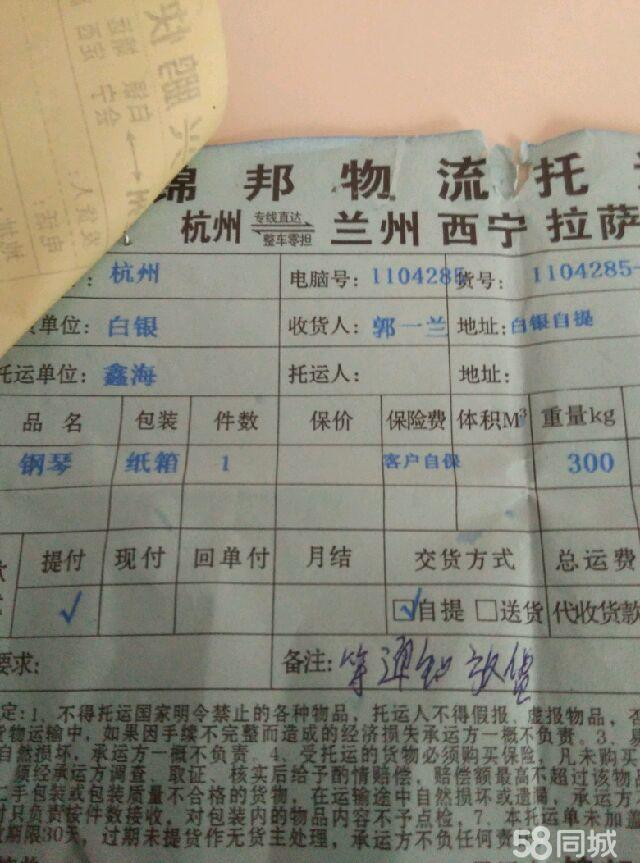 锦邦物流托
杭州 专线直达 整车零担 兰州 西宁 拉萨
杭州 电脑号: 1104285 货号: 1104285-
单位: 白银 收货人: 郭一兰 地址: 白银自提
托运单位: 鑫海 托运人: 地址:
品名 包装 件数 保价 保险费 体积M³ 重量kg
钢琴 纸箱 1 客户自保 300
提付 现付 回单付 月结 交货方式 总运费
√ ☑自提 □送货 代收货款
要求: 备注: 等通知放货
定:1、不得托运国家明令禁止的各种物品，托运人不得假报、虚报物品，否
货物运输中，如果因手续不完整而造成的经济损失承运方一概不负责。3、易
自然损坏，承运方一概不负责。4、受托运的货物必须购买保险，凡未购买
须经承运方调查、取证、核实后给予酌情赔偿，赔偿额最高不超过该物品
二手包装或包装质量不合格的货物，在运输途中自然损坏或遗漏，承运方
时只负责按件数接收，对包装内的物品内容不予点检，7、本托运单未加盖
期限30天，过期未提货作无货主处理，承运方不负任何责
58同城